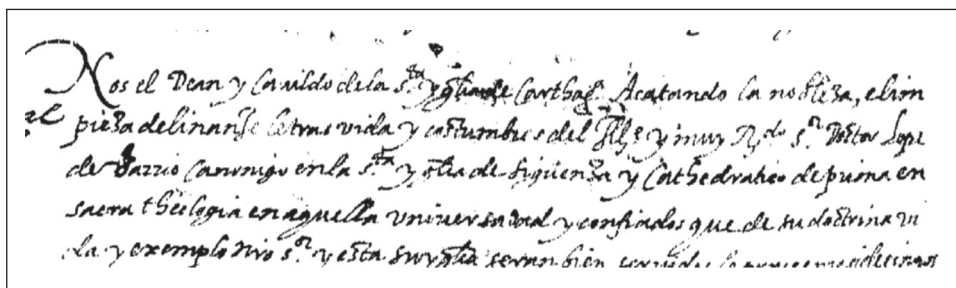 Nos el Dean y Cavildo de la s.ta yglia de Carthag.a Acatando la nobleza, e lim
pieza de linanje letras vida y costumbres del Ill.e y muy R.do s.or Doctor Lope
de Varrio Canonigo en la s.ta yglia de Siguenza y Cathedratico de prima en
sacra theologia en aquella universidad y confiados que de su doctrina vi
da y exemplo nro s.or y esta su yglia seran bien servidos